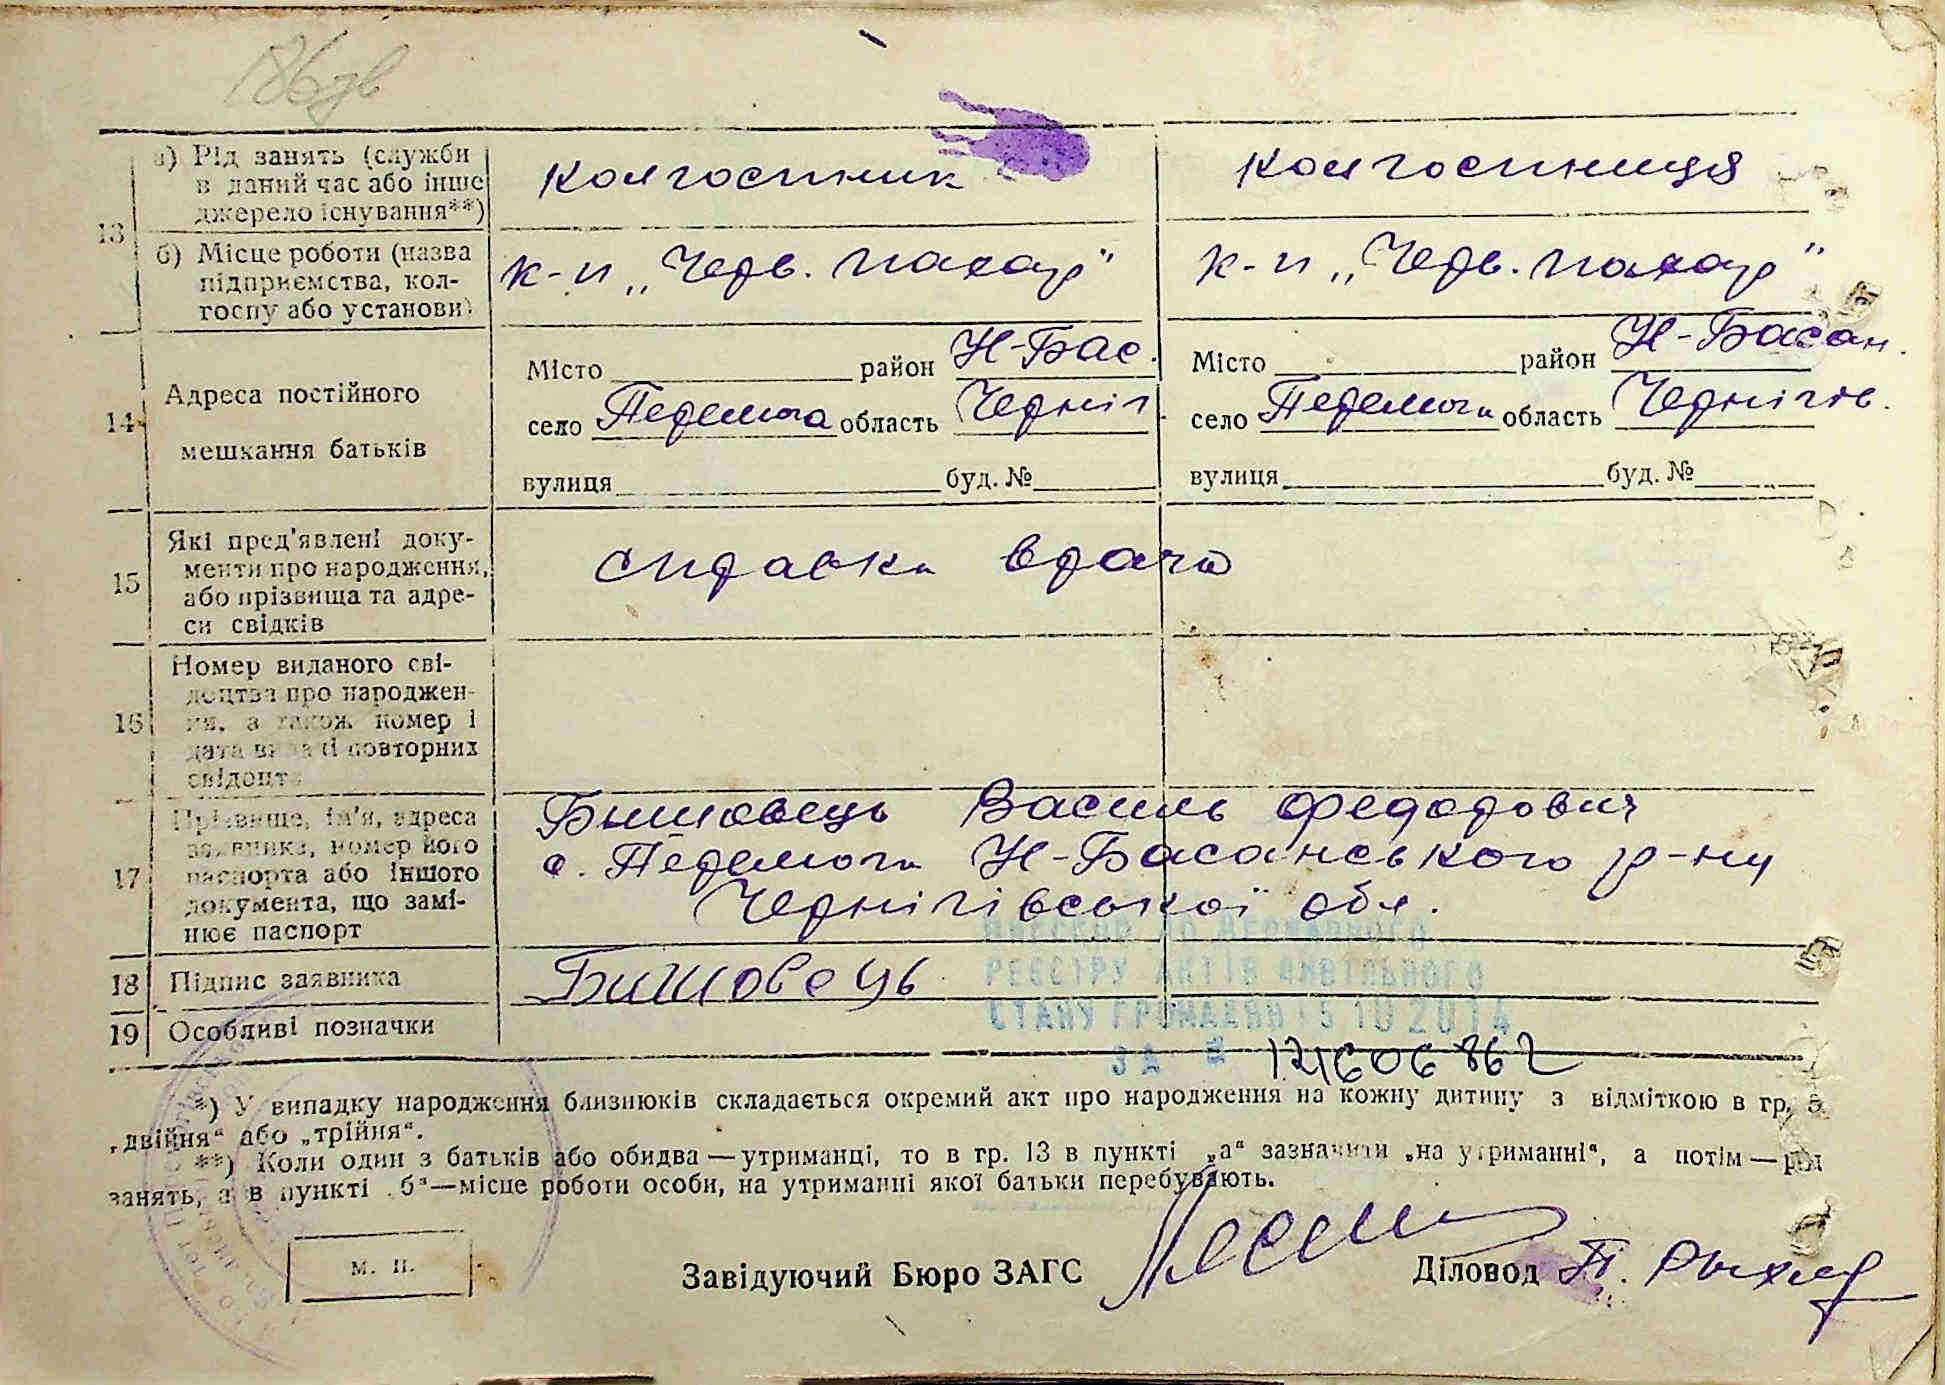 а) Рід занять (служби
в даний час або інше
джерело існування**)
колгоспник
колгоспниця
13
б) Місце роботи (назва
підприємства, кол-
госпу або установи)
к-п „Черв. пахар"
к-п „Черв. пахар"
14
Адреса постійного
мешкання батьків
Місто район Н-Бас.
село Перемога область Черніг.
вулиця буд. №
Місто район Н-Басан.
село Перемога область Чернігів.
вулиця буд. №
15
Які пред'явлені доку-
менти про народження,
або прізвища та адре-
си свідків
справка врача
16
Номер виданого сві-
доцтва про народжен-
ня, а також номер і
дата видачі повторних
свідоцтв
17
Прізвище, ім'я, адреса
заявника, номер його
паспорта або іншого
документа, що замі-
нює паспорт
Бишовець Василь Федорович
с. Перемога Н-Басанського р-ну
Чернігівської обл.
18 Підпис заявника
Бишовець
19 Особливі позначки
Внесено до Державного
РЕЄСТРУ АКТІВ ЦИВІЛЬНОГО
СТАНУ ГРОМАДЯН
ЗА №
*) У випадку народження близнюків складається окремий акт про народження на кожну дитину з відміткою в гр. 5
„двійня" або „трійня".
**) Коли один з батьків або обидва—утриманці, то в гр. 13 в пункті „а" зазначити „на утриманні", а потім—рід
занять, а в пункті „б"—місце роботи особи, на утриманні якої батьки перебувають.
м. п.
Завідуючий Бюро ЗАГС
Діловод